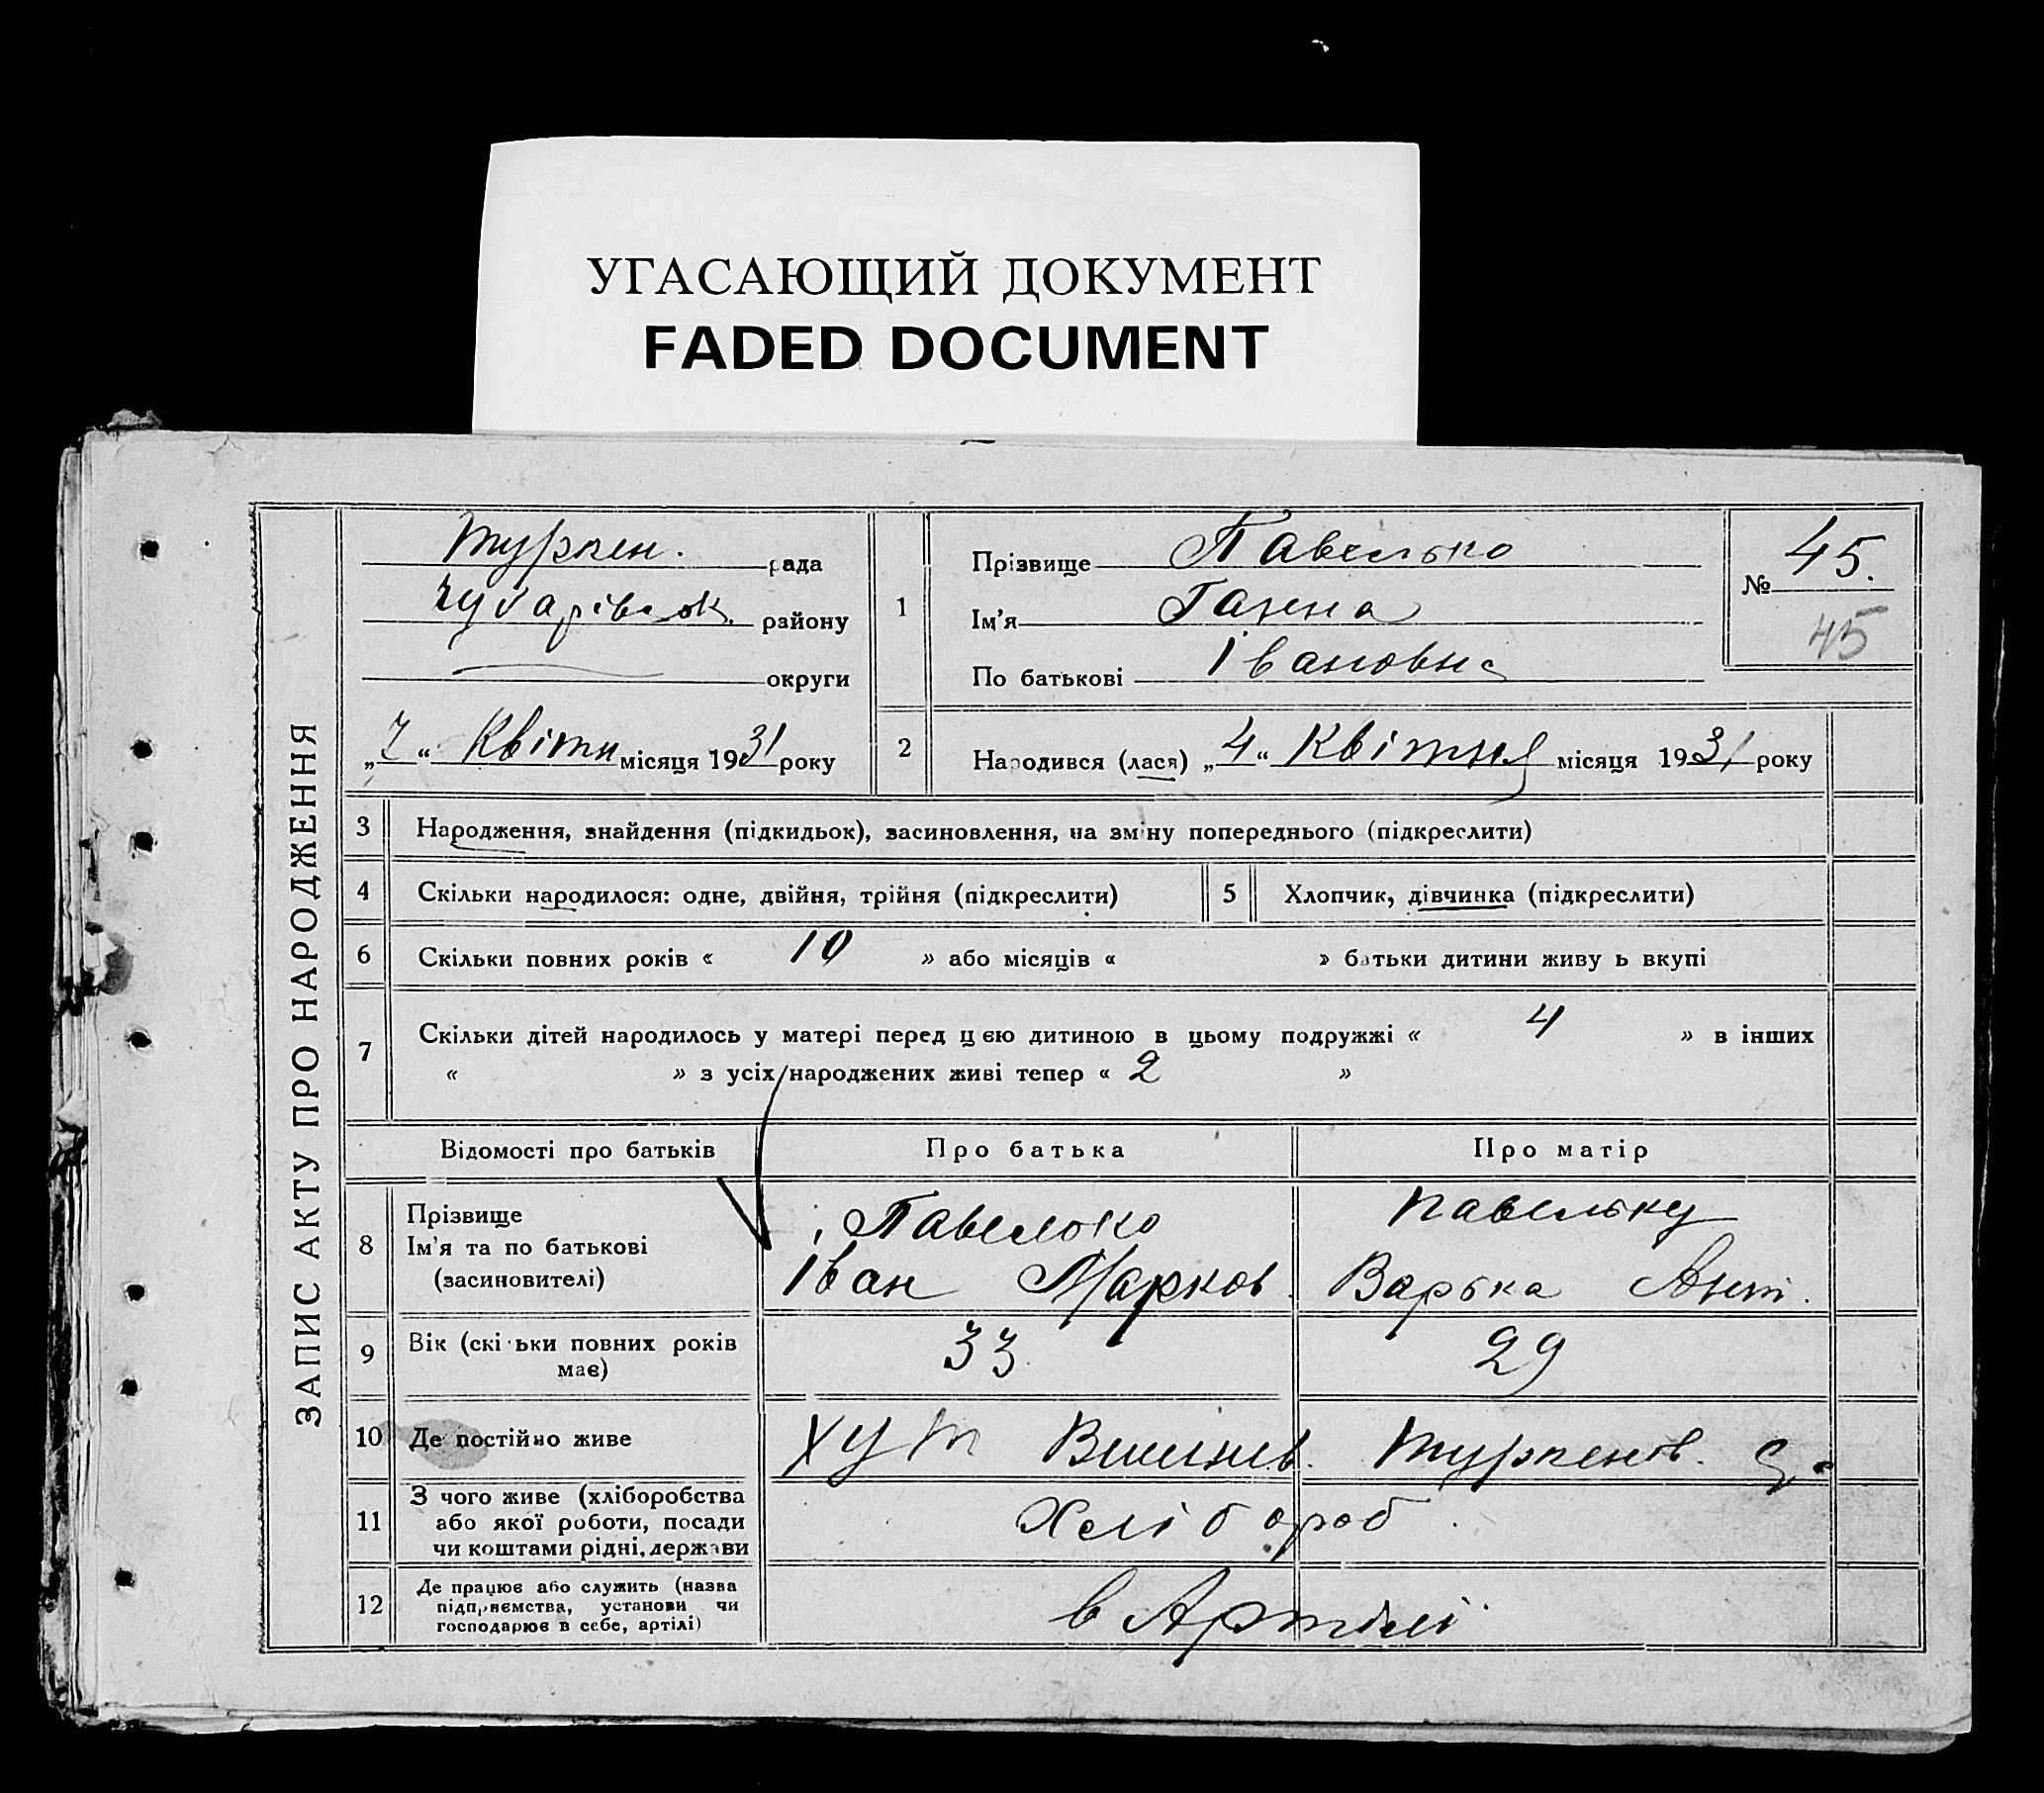 УГАСАЮЩИЙ ДОКУМЕНТ
FADED DOCUMENT
ЗАПИС АКТУ ПРО НАРОДЖЕННЯ
Туркен. рада
Чубарівськ. району
округи
„7“ Квітн місяця 1931 року
1
Прізвище Павелько
Ім'я Ганна
По батькові Івановна
№ 45.
45
2
Народився (лася) „4“ Квітня місяця 1931 року
3 Народження, знайдення (підкидьок), засиновлення, на зміну попереднього (підкреслити)
4 Скільки народилося: одне, двійня, трійня (підкреслити)
5 Хлопчик, дівчинка (підкреслити)
6 Скільки повних років « 10 » або місяців « » батьки дитини живу ь вкупі
7 Скільки дітей народилось у матері перед цією дитиною в цьому подружжі « 4 » в інших
« » з усіх народжених живі тепер « 2 »
Відомості про батьків Про батька Про матір
8
Прізвище
Ім'я та по батькові
(засиновителі)
Павелько
Іван Марков.
Павельку
Варька Ант.
9 Вік (скільки повних років
має)
33
29
10 Де постійно живе
хут Вишнев. Туркенов. С.
11 З чого живе (хліборобства
або якої роботи, посади
чи коштами рідні, держави
Хлібороб
12 Де працює або служить (назва
підприємства, установи чи
господарює в себе, артілі)
в Артілі